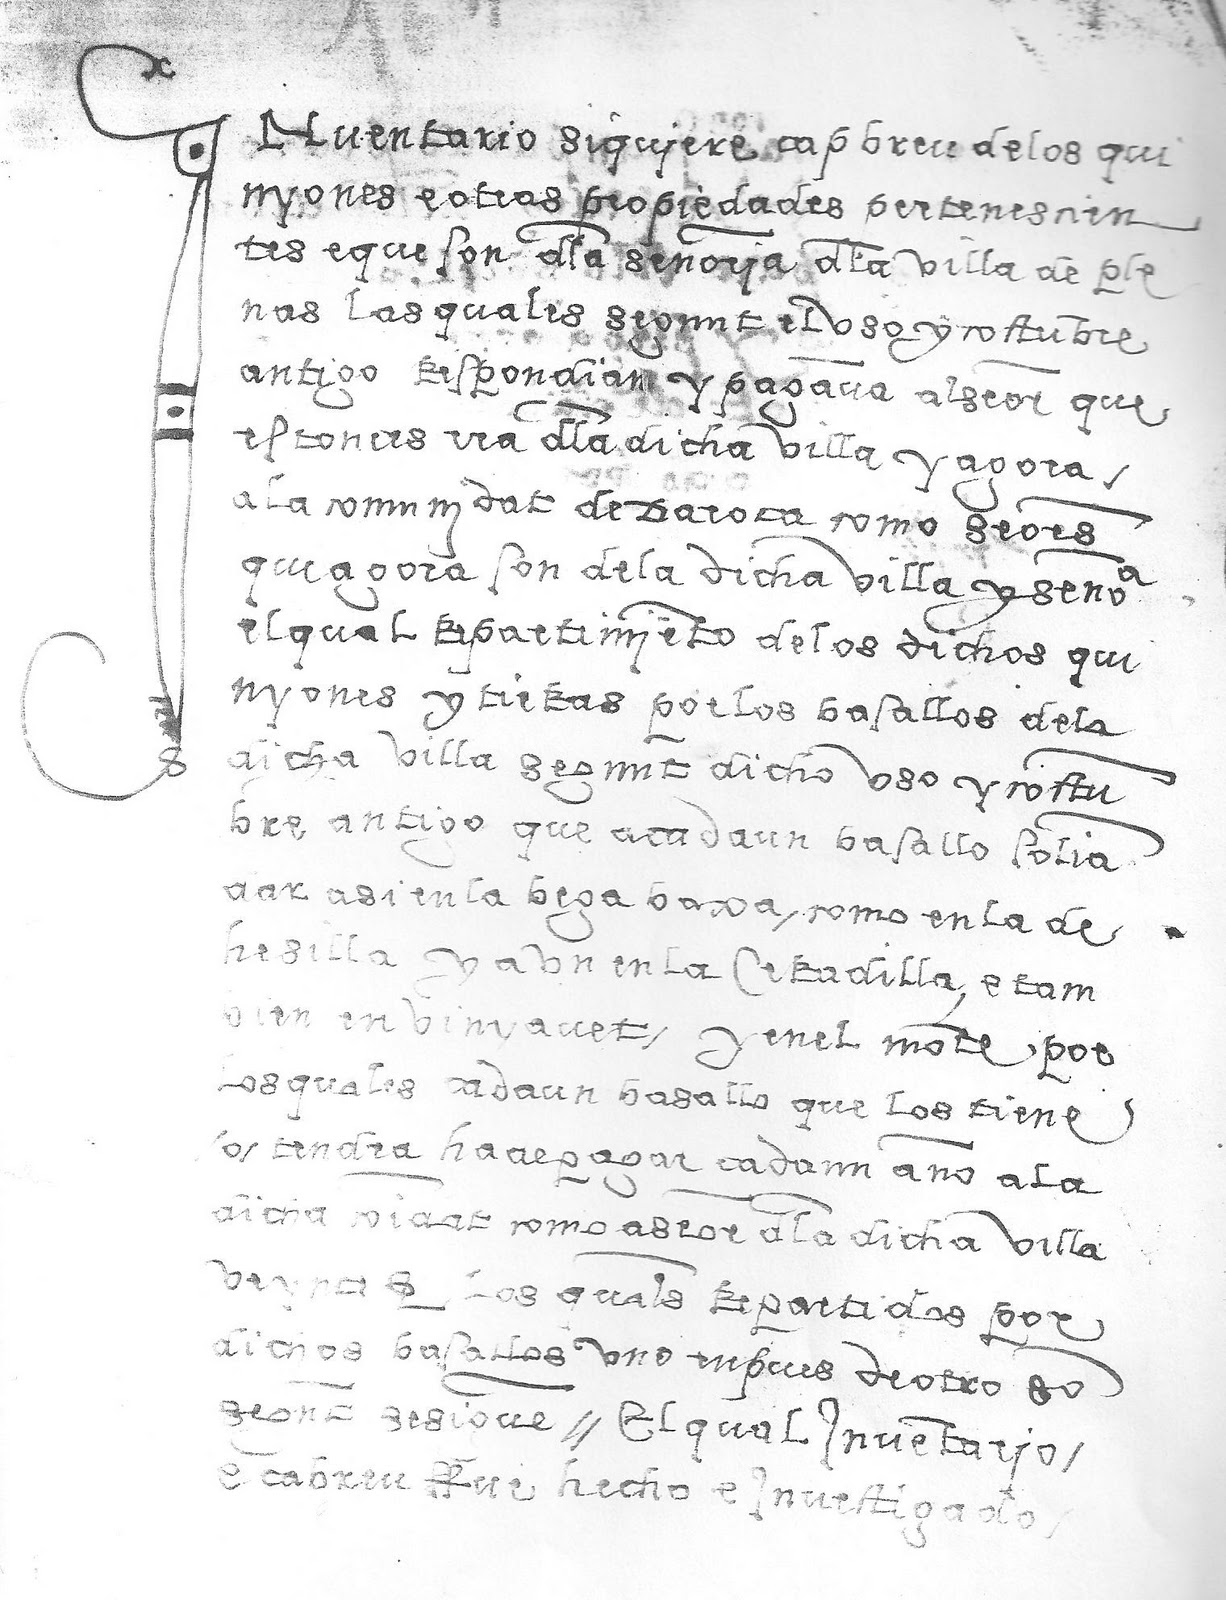 INuentario siqujere capbreu delos qui
nyones e otras propiedades pertenescien
tes e que son dla señorja dla villa de ple
nas las quales segunt el vso y costubre
antigo respondian y pagaua al señor que
estonces era dla dicha villa y agora /
ala comunjdat de Daroca como señores
que agora son dela dicha villa y senoa
el qual repartimjeto delos dichos qui
nyones y tierras por los basallos dela
dicha villa segunt dicho vso y costu
bre antigo que acadaun basallo solia
dar asi en la bega baxa / como en la de
hesilla y avn en la Cerradilla, e tam
bien en vinyacuet / y en el mote por
los quales cadaun basallo que los tiene
/o/ tendra ha de pagar cadaun año ala
dicha coidat como a señor dla dicha villa
veynte s los quals repartidos por
dichos basallos vno enpues de otro so
segont se sigue // El qual Inuetarjo /
e cabreu ffue hecho e Inuestigado /